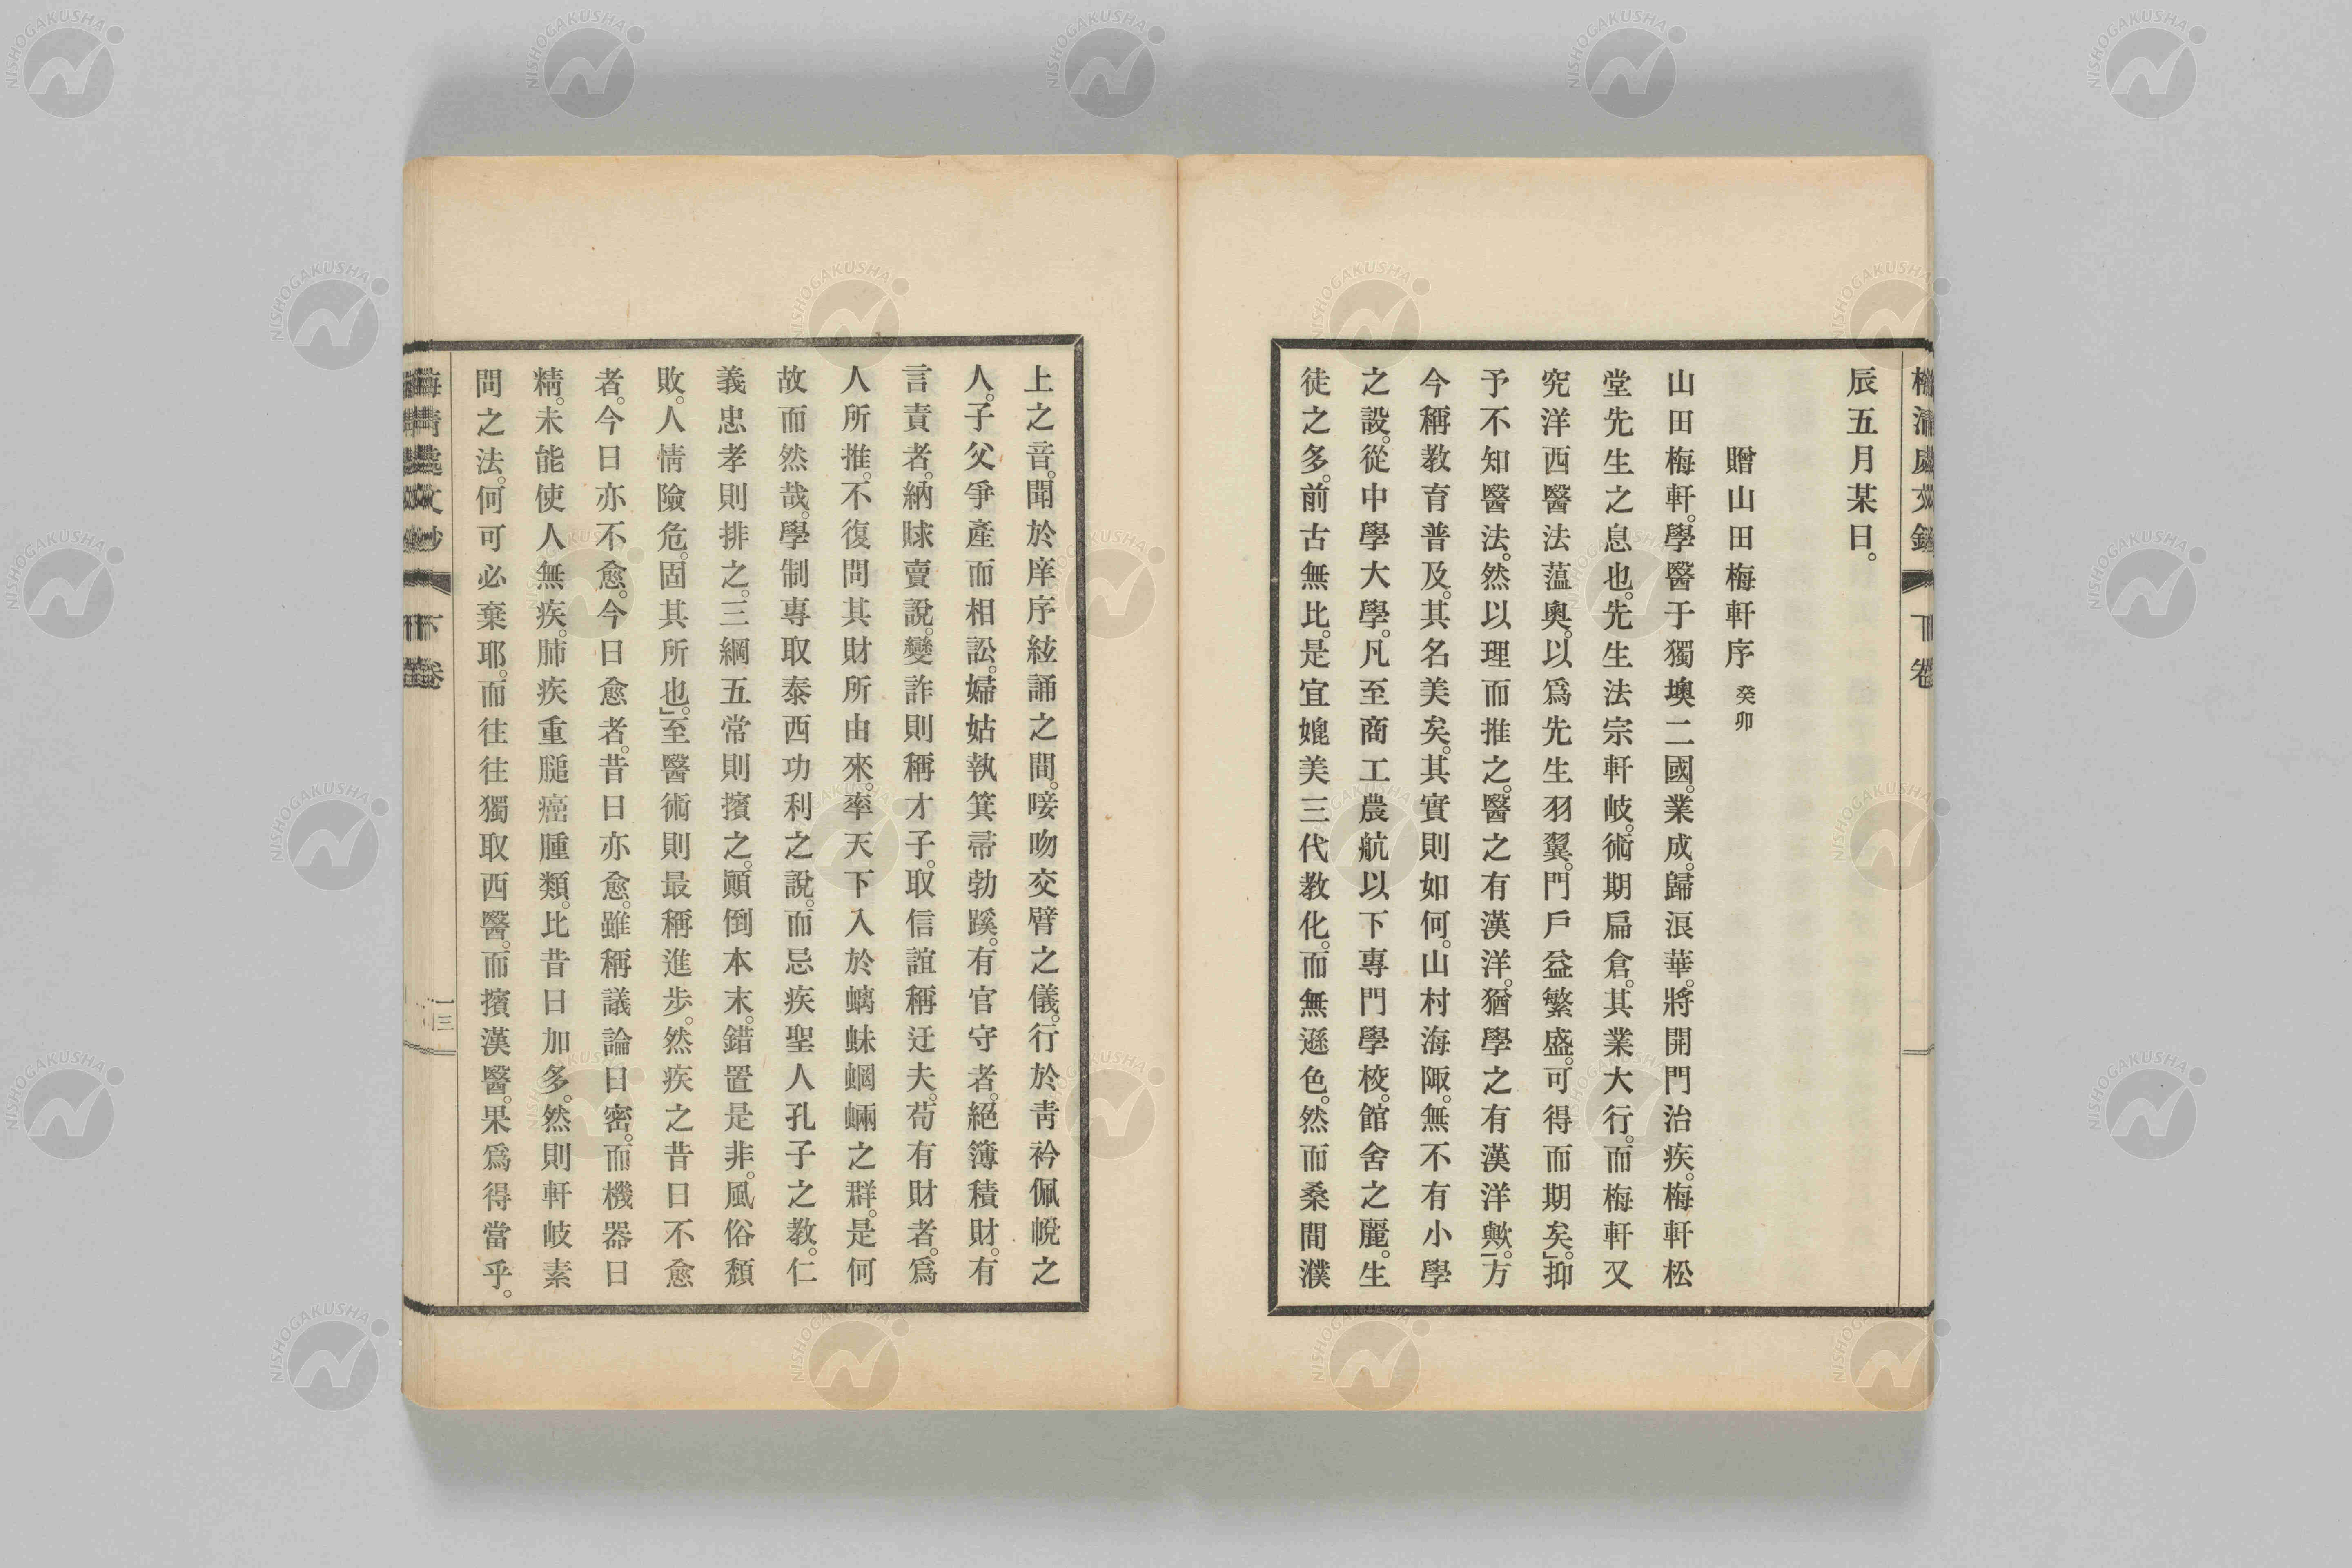 辰五月某日。
贈山田梅軒序 癸卯
山田梅軒。學醫于獨墺二國。業成。歸浪華。將開門治疾。梅軒松
堂先生之息也。先生法宗軒岐。術期扁倉。其業大行。而梅軒又
究洋西醫法薀奧。以爲先生羽翼。門戶益繁盛。可得而期矣。」抑
予不知醫法。然以理而推之。醫之有漢洋。猶學之有漢洋歟。」方
今稱教育普及。其名美矣。其實則如何。山村海陬。無不有小學
之設。從中學大學。凡至商工農航以下專門學校。館舍之麗。生
徒之多。前古無比。是宜媲美三代教化。而無遜色。然而桑間濮
上之音。聞於庠序絃誦之間。唼吻交臂之儀。行於靑衿佩帨之
人。子父爭產而相訟。婦姑執箕帚勃蹊。有官守者。絕簿積財。有
言責者。納賕賣說。變詐則稱才子。取信誼稱迂夫。苟有財者。爲
人所推。不復問其財所由來。率天下入於螭魅蝄蜽之群。是何
故而然哉。學制專取泰西功利之說。而忌疾聖人孔子之教。仁
義忠孝則排之。三綱五常則擯之。顚倒本末。錯置是非。風俗頽
敗。人情險危。固其所也。」至醫術則最稱進步。然疾之昔日不愈
者。今日亦不愈。今日愈者。昔日亦愈。雖稱議論日密。而機器日
精。未能使人無疾。肺疾重膇癌腫類。比昔日加多。然則軒岐素
問之法。何可必棄耶。而往往獨取西醫。而擯漢醫。果爲得當乎。
下卷
一三
NISHOGAKUSHA